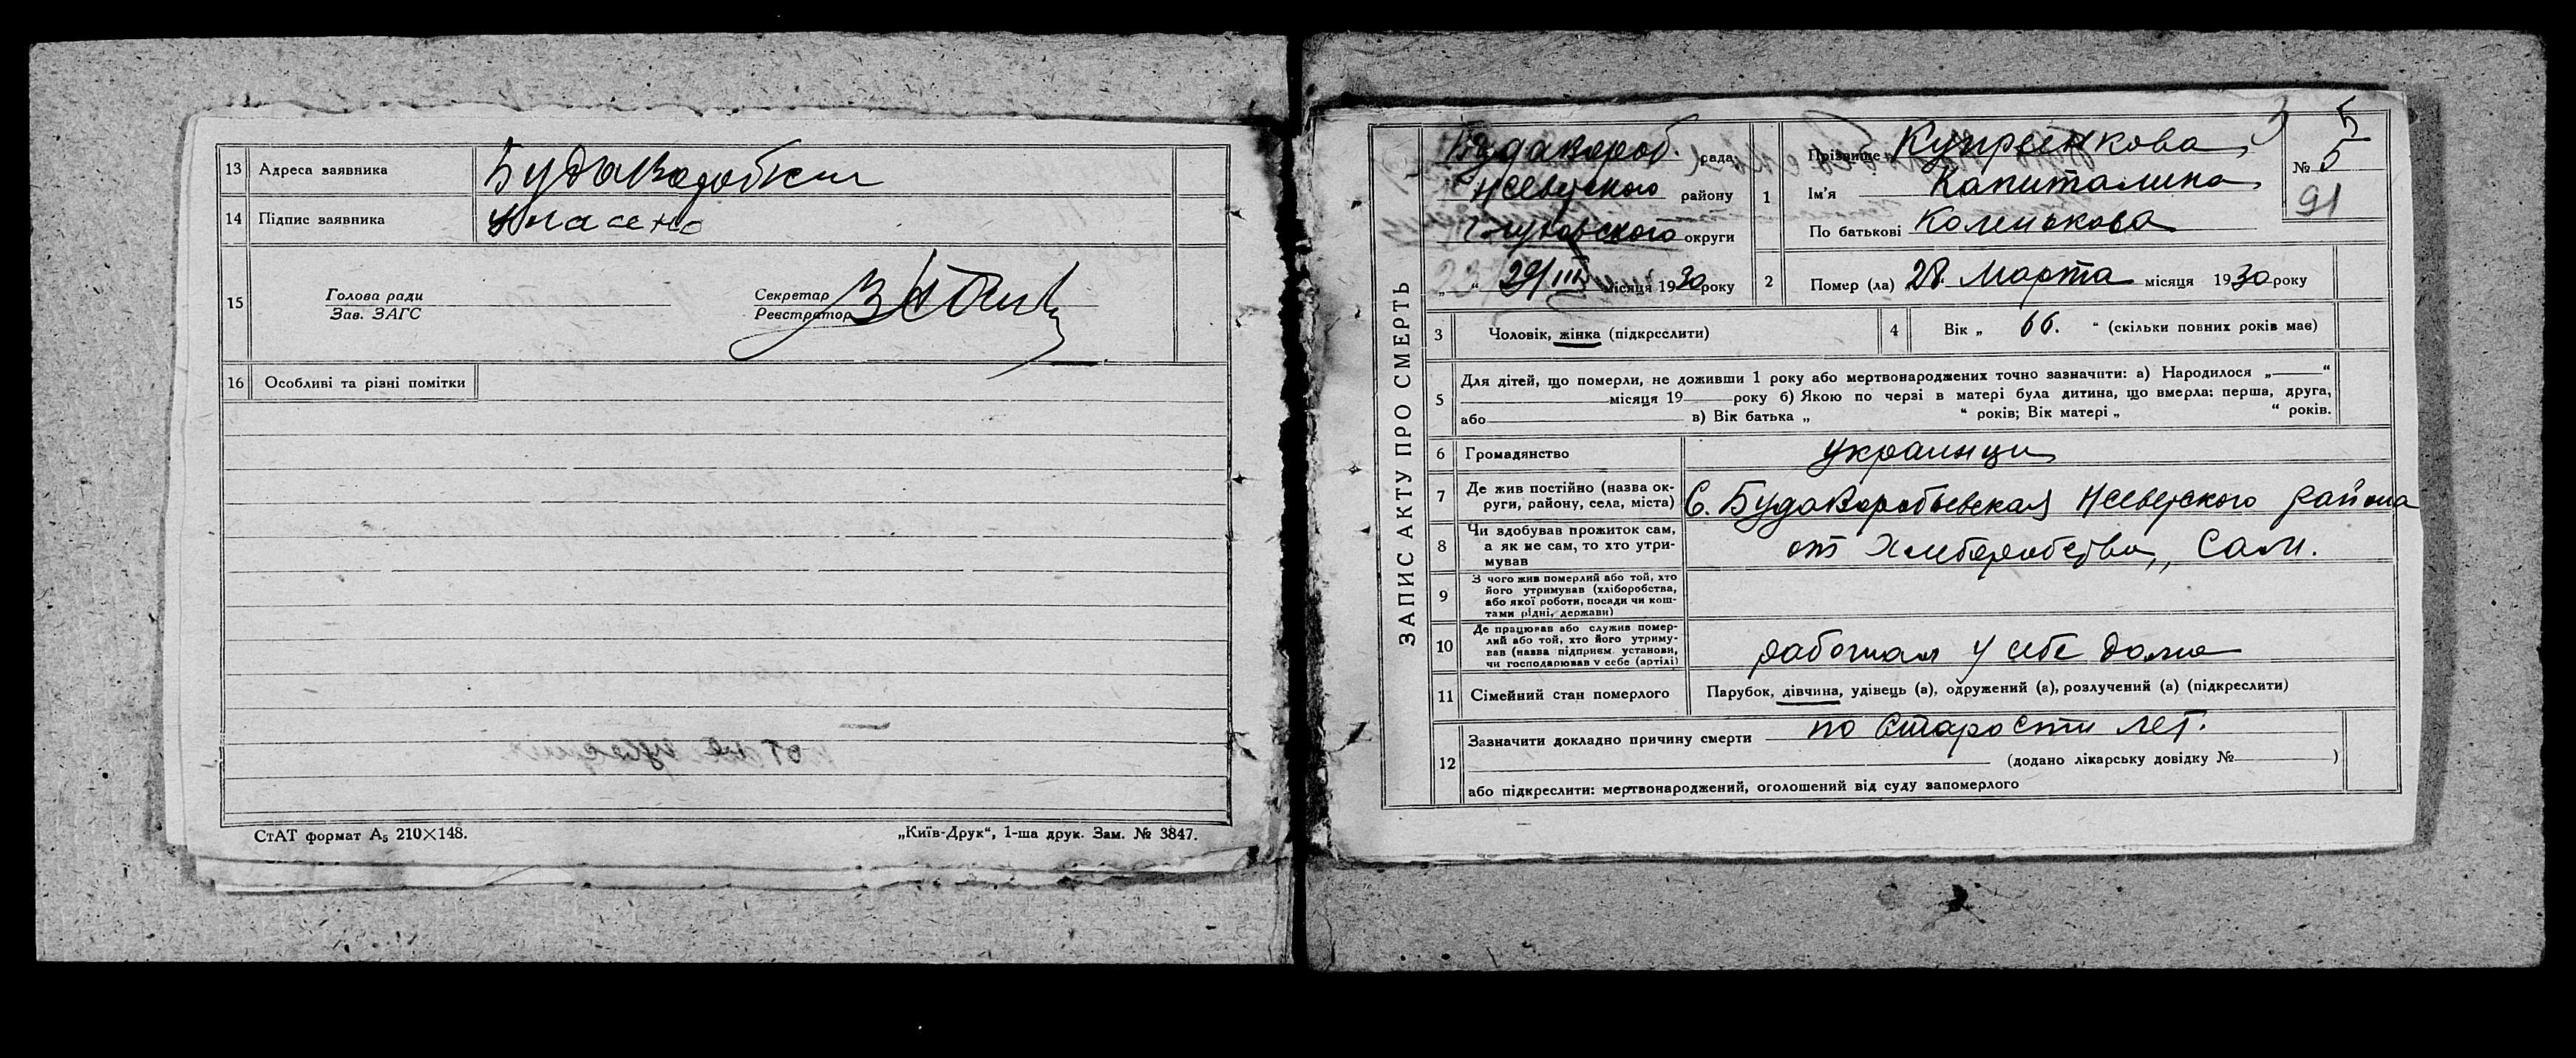 13 Адреса заявника
14 Підпис заявника
15 Голова ради
Зав. ЗАГС
Секретар
Реєстратор
16 Особливі та різні помітки
СтАТ формат А5 210×148.
„Київ-Друк“, 1-ша друк. Зам. № 3847.
ЗАПИС АКТУ ПРО СМЕРТЬ
Будавороб. рада
НСеверского району
Глуховского округи
„ “ 29/III місяця 1930 року
1 Прізвище Купреенкова
Ім’я Капиталина
По батькові Коленькова
№ 5
91
2 Помер (ла) 28 Марта місяця 1930 року
3 Чоловік, жінка (підкреслити)
4 Вік „ 66. “ (скільки повних років має)
5 Для дітей, що померли, не доживши 1 року або мертвонароджених точно зазначити: а) Народилося „ “
місяця 19 року б) Якою по черзі в матері була дитина, що вмерла: перша, друга,
або в) Вік батька „ “ років; Вік матері „ “ років.
6 Громадянство украинци
7 Де жив постійно (назва ок-
руги, району, села, міста) С. БудаВоробьевская НСеверского района
8 Чи здобував прожиток сам,
а як не сам, то хто утри-
мував от Хлеборобства,, Сам.
9 З чого жив померлий або той, хто
його утримував (хліборобства,
або якої роботи, посади чи кош-
тами рідні, держави)
10 Де працював або служив помер-
лий або той, хто його утриму-
вав (назва підприєм. установи,
чи господарював у себе (артілі) работал у себе дома
11 Сімейний стан померлого Парубок, дівчина, удівець (а), одружений (а), розлучений (а) (підкреслити)
12 Зазначити докладно причину смерти по Старости лет.
(додано лікарську довідку № )
або підкреслити: мертвонароджений, оголошений від суду запомерлого